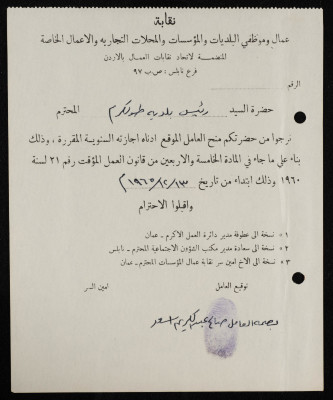 نقابة
عمال وموظفي البلديات والمؤسسات والمحلات التجاريه والاعمال الخاصة
المنضمة لاتحاد نقابات العمال بالاردن
فرع نابلس : ص ب ٩٧
الرقم
حضرة السيد رئيس بلدية طولكرم المحترم
نرجوا من حضرتكم منح العامل الموقع ادناه اجازته السنوية المقررة ، وذلك
بناء على ما جاء في المادة الخامسة والاربعين من قانون العمل المؤقت رقم ٢١ لسنة
١٩٦٠ وذلك ابتداء من تاريخ ١٩٦٥/١٢/١٣ م
واقبلوا الاحترام
١ نسخة الى عطوفة مدير دائرة العمل الاكرم - عمان
٢ نسخة الى سعادة مدير مكتب الشؤون الاجتماعية المحترم - نابلس
٣ نسخة الى الاخ امين سر نقابة عمال المؤسسات المحترم - عمان
توقيع العامل امين السر
بصمة العامل عبد الكريم اسعد